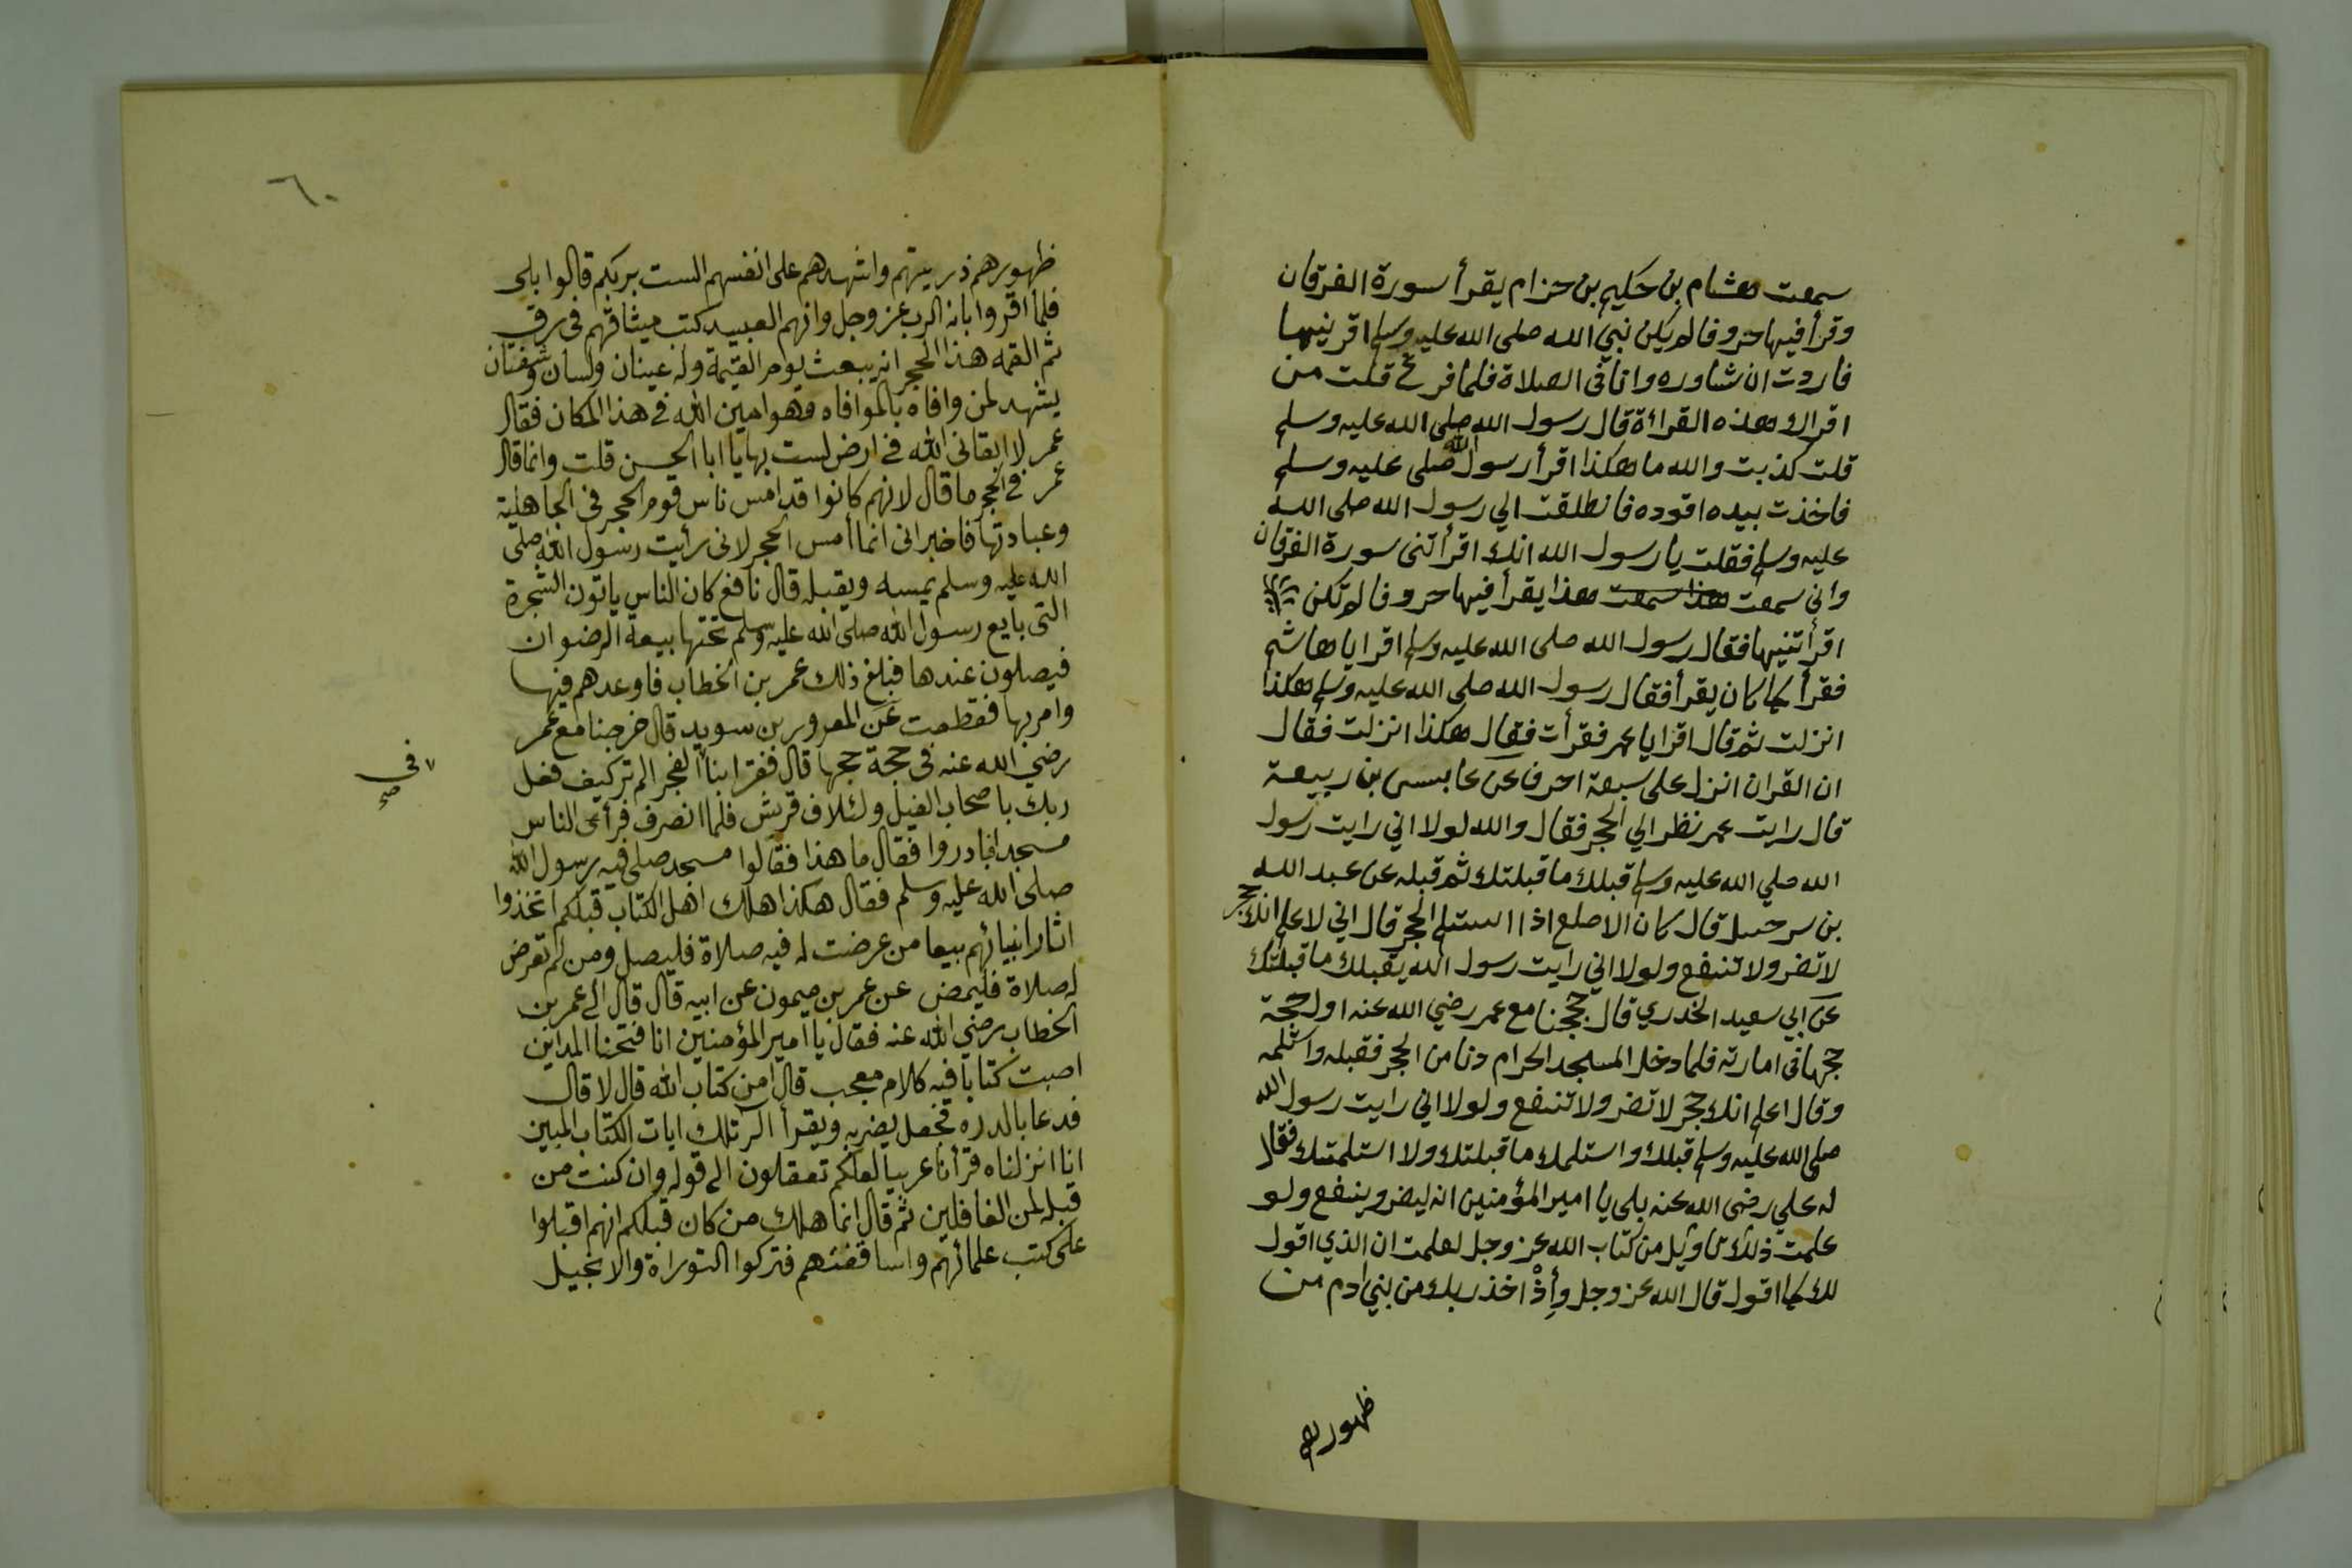 سمعت هشام بن حكيم بن حزام يقرأ سورة الفرقان
وقرأ فيها حروفا لم يكن نبي الله صلى الله عليه وسلم اقرنيها
فاردت ان شاوره وانا في الصلاة فلما فرغ قلت من
اقراك هذه القرائة قال رسول الله صلى الله عليه وسلم
قلت كذبت والله ما هكذا اقرأ رسول الله صلى عليه وسلم
فاخذت بيده اقوده فانطلقت الي رسول الله صلى الله
عليه وسلم فقلت يا رسول الله انك اقرأتنى سورة الفرقان
وانى سمعت هذا سمعت هذا يقرأ فيها حروفا لم تكن
اقرأتنيها فقال رسول الله صلى الله عليه وسلم اقرا يا هاشم
فقرأ كما كان يقرأ فقال رسول الله صلى الله عليه وسلم هكذا
انزلت ثم قال اقرا يا عمر فقرأت فقال هكذا انزلت فقال
ان القران انزل على سبعة احرف عن عابس بن ربيعة
قال رايت عمر نظر الي الحجر فقال والله لولا اني رايت رسول
الله صلي الله عليه وسلم قبلك ما قبلتك ثم قبله عن عبد الله
بن سرجس قال كان الاصلع اذا استلم الحجر قال اني لاعلم انك حجر
لا تضر ولا تنفع ولولا اني رايت رسول الله يقبلك ما قبلتك
عن ابي سعيد الخدري قال حججنا مع عمر رضي الله عنه اول حجة
حجها في امارته فلما دخل المسجد الحرام دنا من الحجر فقبله واستلمه
وقال اعلم انك حجر لا تضر ولا تنفع ولولا اني رايت رسول الله
صلى الله عليه وسلم قبلك واستلمك ما قبلتك ولا استلمتك فقال
له علي رضى الله عنه بلى يا امير المؤمنين انه ليضر وينفع ولو
علمت ذلك تاويل من كتاب الله عز وجل لعلمت ان الذي اقول
لك كما اقول قال الله عز وجل وأذ اخذ ربك من بني ادم من
ظهورهم
٦٠
ظهورهم ذريتهم واشهدهم على انفسهم الست بربكم قالوا بلى
فلما اقروا بانه الرب عز وجل وانهم العبيد كتب ميثاقهم فى رق
ثم القمه هذا الحجر انه يبعث يوم القيمة وله عينان ولسان وشفتان
يشهد لمن وافاه بالموافاه فهو امين الله في هذا المكان فقال
عمر لا ابقانى الله في ارض لست بها يا ابا الحسن قلت وانما قال
عمر في الحجر ما قال لانهم كانوا قد امس ناس قوم الحجر فى الجاهلية
وعبادتها فاخبر انى انما أمس الحجر لانى رأيت رسول الله صلى
الله عليه وسلم يمسه ويقبله قال نافع كان الناس ياتون الشجرة
التى بايع رسول الله صلى الله عليه وسلم تحتها بيعة الرضوان
فيصلون عندها فبلغ ذلك عمر بن الخطاب فاوعدهم فيها
وامر بها فقطعت عن المعرور بن سويد قال خرجنا مع عمر
رضي الله عنه فى حجة حجها قال فقرا بنا الفجر الم تر كيف فعل
في صح
ربك باصحاب الفيل ولئلاف قريش فلما انصرف فرأى الناس
مسجد افبادروا فقال ما هذا فقالوا مسجد صلى فيه رسول الله
صلى الله عليه وسلم فقال هكذا هلك اهل الكتاب قبلكم اتخذوا
اثار انبيائهم بيعا من عرضت له فيه صلاة فليصل ومن لم تعرض
له صلاة فليمض عن عمر بن ميمون عن ابيه قال قال الى عمر بن
الخطاب رضي الله عنه فقال يا امير المؤمنين انا فتحنا المداين
اصبت كتابا فيه كلام معجب قال امن كتاب الله قال لا قال
فدعا بالدره فجعل يضربه ويقرأ الر تلك ايات الكتاب المبين
انا انزلناه قرأنا عربيا لعلكم تعقلون الى قوله وان كنت من
قبله لمن الغافلين ثم قال انما هلك من كان قبلكم انهم اقبلوا
على كتب علمائهم واساقفتهم فتركوا التوراة والانجيل